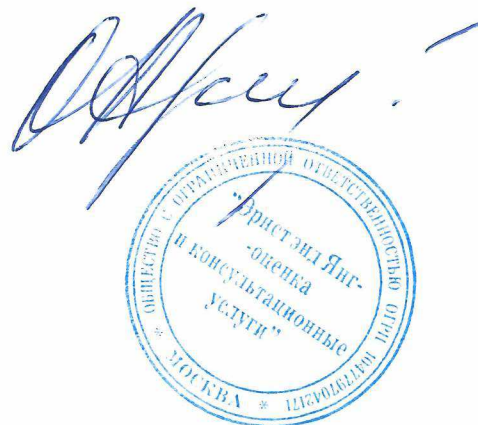 ОБЩЕСТВО С ОГРАНИЧЕННОЙ ОТВЕТСТВЕННОСТЬЮ ОГРН 1047797042171
* МОСКВА *
"Эрнст энд Янг-
-оценка
и консультационные
услуги"